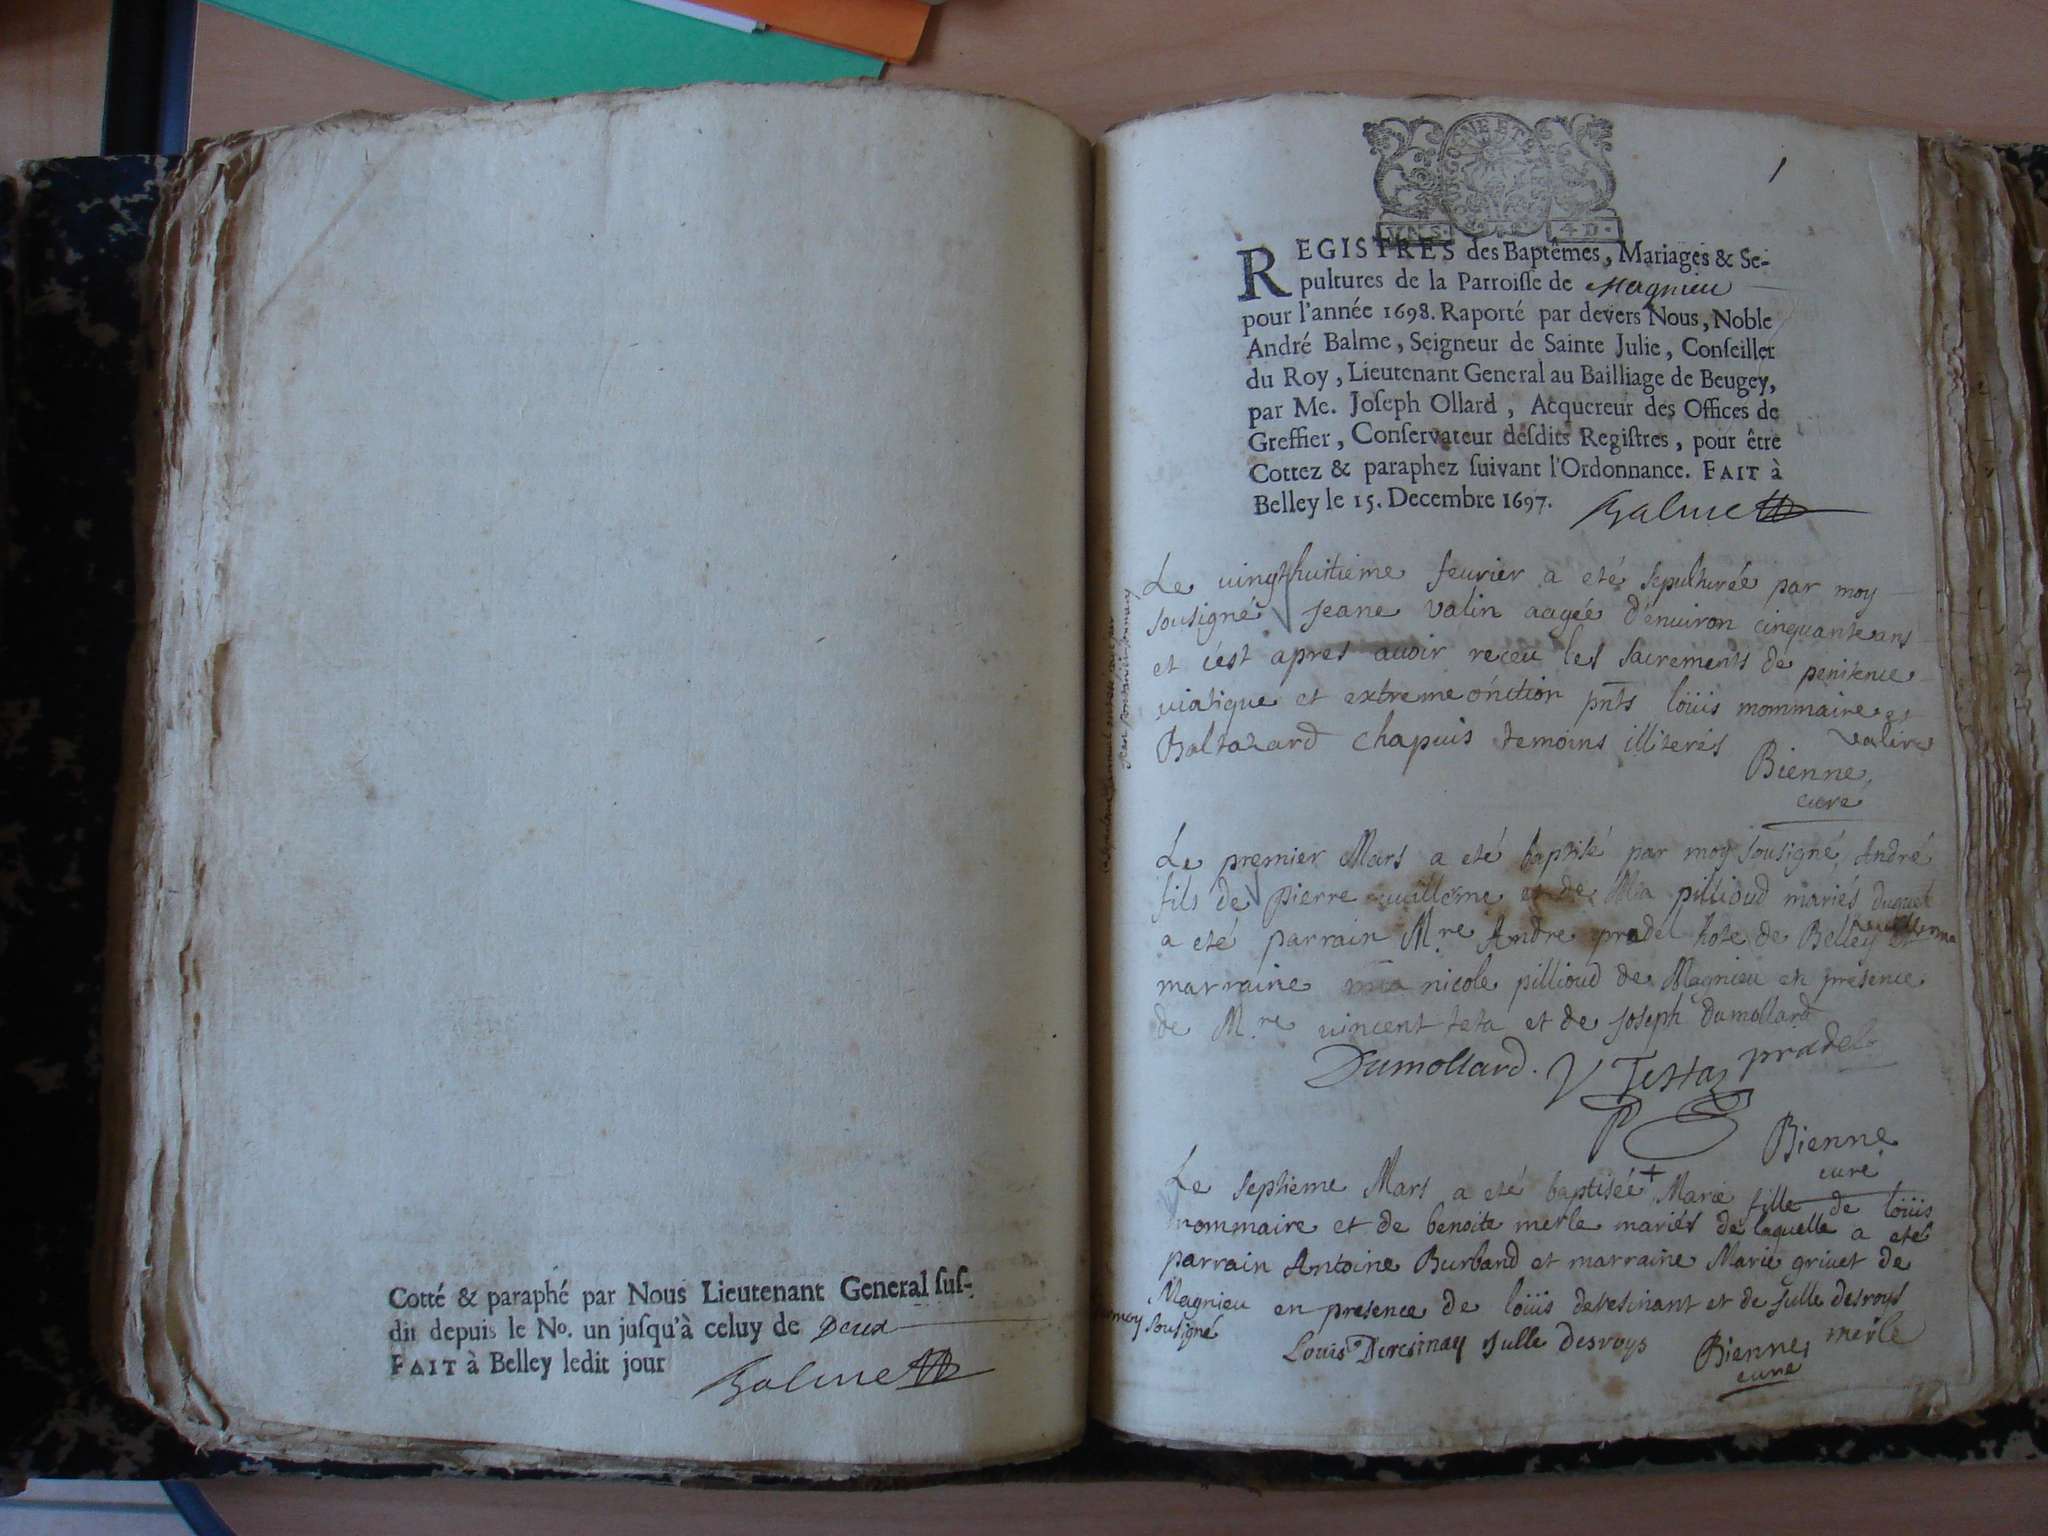 Cotté & paraphé par Nous Lieutenant General ſuſ-
dit depuis le No. un juſqu'à celuy de Deux
FAIT à Belley ledit jour
Balme
1
VN S. 4 D.
REGISTRES des Baptêmes, Mariages & Se-
pultures de la Parroiſſe de Magnieu
pour l'année 1698. Raporté par devers Nous, Noble
André Balme, Seigneur de Sainte Julie, Conſeiller
du Roy, Lieutenant General au Bailliage de Beugey,
par Me. Joſeph Ollard, Acquereur des Offices de
Greffier, Conſervateur deſdits Regiſtres, pour être
Cottez & paraphez ſuivant l'Ordonnance. FAIT à
Belley le 15. Decembre 1697.
Balme
Le vingthuitieme feurier a eté sepulturée par moy
sousigné Jeane valin aagée d'enuiron cinquante ans
et c'est apres auoir receu les sacrements de penitence
viatique et extreme onction pnts loüis mommaire et
Baltazard chapuis temoins illiterés
valin
Bienne
curé
Le premier Mars a eté baptisé par moy sousigné André
fils de pierre guillerme et de Mia pillioud mariés duquel
a eté parrain M.re Andre pradel hote de Belley et
marraine nicole pillioud de Magnieu en presence
de M.re vincent teta et de Joseph Dumollard
Dumollard. V Testaz pradel
Bienne
curé
Le septieme Mars a eté baptisée + Marie fille de loüis
mommaire et de benoite merle mariés de laquelle a eté
parrain Antoine Burband et marraine Marie griuet de
Magnieu en presence de loüis deresinant et de Julle desroys
sousigné
Louis Deresinay Julle desroys Bienne merle
curé